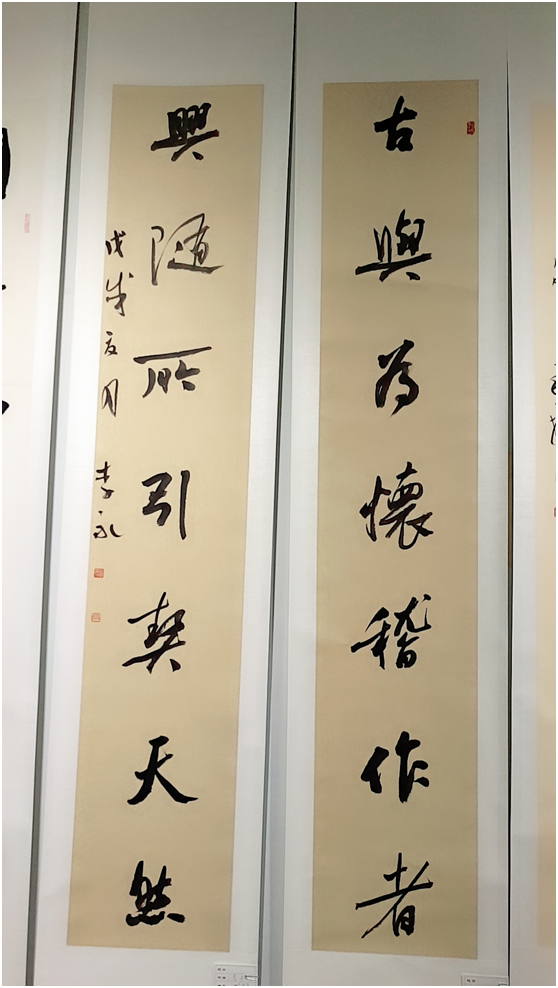 古與為懷稽作者
興隨所引契天然
戊戌夏月 李永